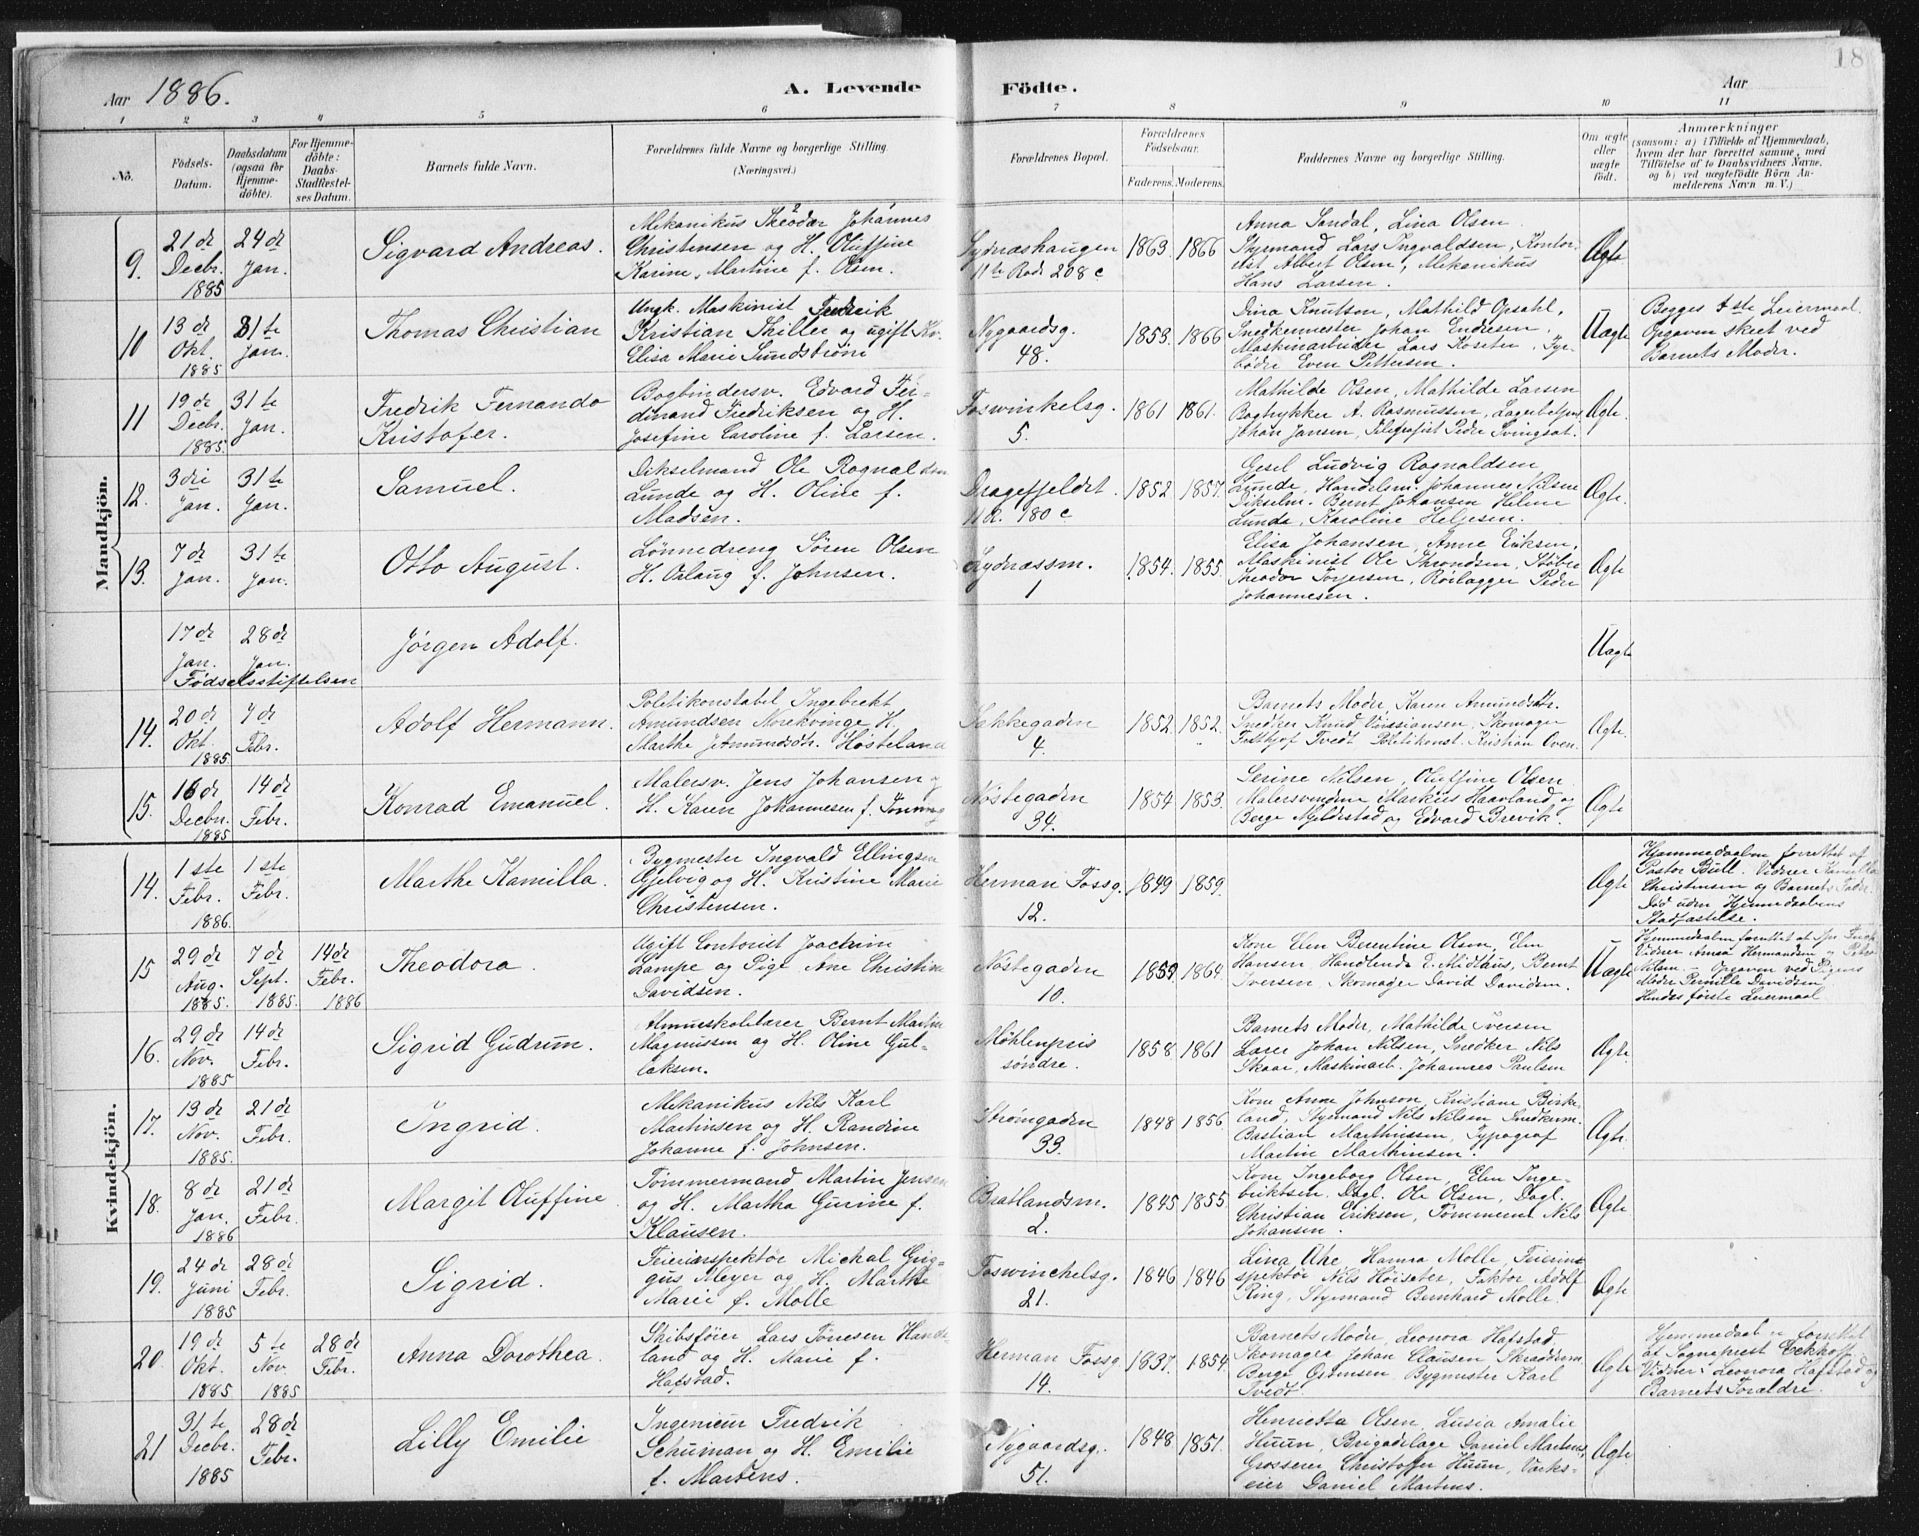 18
Aar 1886.
A. Levende Födte.
Aar
1 2 3 4 5 6 7 8 9 10 11
No.
Födsels-
Datum.
Daabsdatum
(ogsaa for
Hjemme-
döbte).
For Hjemme-
döbte:
Daabs-
Stadfæstel-
ses Datum.
Barnets fulde Navn.
Forældrenes fulde Navne og borgerlige Stilling.
(Næringsvei.)
Forældrenes Bopæl.
Forældrenes
Födselsaar.
Faderens. Moderens.
Faddernes Navne og borgerlige Stilling.
Om ægte
eller
uægte
født.
Anmærkninger
(saasom: a) i Tilfælde af Hjemmedaab,
hvem der har forrettet samme, med
Tilföielse af to Daabsvidners Navne,
og b) ved uægtefödte Börn An-
melderens Navn m. V.)
Mandkjön.
9.
21 de
Decbr.
1885
24 de
Jan.
Sigvard Andreas.
Mekanikus Theodor Johannes
Christensen og H. Oluffine
Karine Martine f. Olsen.
Sydnæshaugen
11te Rode 208 c
1863 1866
Anna Sandal, Lina Olsen
Styrmand Lars Ingvaldsen, Kontor-
ist Albert Olsen, Mekanikus
Hans Larsen.
Ægte
10
13 de
Okt.
1885
31 te
Jan.
Thomas Christian
Ungk. Maskinist Fredrik
Kristian Thiller og ugift Kv.
Elisa Marie Sundstrøm
Nygaardsg.
48.
1853 1866
Dina Knutson, Mathild Opdahl,
Snedkermester Johan Endresen,
Maskinarbeider Lars Kaseter, Fyr-
bøder Even Pettersen.
Uægte
Begges 1ste Leiermaal.
Opgaven skeet ved
Barnets Moder.
11
19 de
Decbr.
1885.
31 te
Jan.
Fredrik Fernando
Kristofer.
Bogbindersv. Edvard Fer-
dinand Fredriksen og H.
Josefine Caroline f. Larsen.
Foswinkelsg.
5.
1861 1861.
Mathilde Olsen, Mathilde Larsen
Bogtrykker A. Rasmussen,
Johan Jansen, Telegrafist Peder
Ægte.
12.
3 die
Jan.
31 te
Jan.
Samuel.
Dikselmand Ole Rognaldsen
Lunde og H. Oline f.
Madsen.
Dragefjeldet.
11 R. 180 c
1852 1857.
Gesel Ludvig Rognaldsen
Lunde, Handelsm. Johannes Nilsen
Dikselm. Bernt Johansen Helene
Lunde, Karoline Heljesen.
Ægte.
13.
7 de
Jan.
31 te
Jan.
Otto August.
Lønnedreng Søren Olsen
H. Aslaug f. Johnsen.
Sydnæssm.
1
1854. 1855.
Elisa Johansen, Anne Eriksen,
Maskinist Ole Throndsen, Støber
Theodor Torjersen, Rørlægger Peder
Johannesen.
Ægte
17 de
Jan.
28 de
Jan.
Fødselsstiftelsen
Jørgen Adolf.
Uægte
14.
20 de
Okt.
1885
7 de
Febr.
Adolf Hermann.
Politikonstabel Ingebrekt
Amundsen Norekvinge H.
Marthe Amundsdtr. Høsteland
Sækkegaden
4.
1852. 1852.
Barnets Moder, Karen Amundsdtr.
Snedker Knud Vinssiansen, Skomager
Fridthjof Tvedt Politikonst. Kristian Oven
Ægte.
15.
16 de
Decbr.
1885
14 de
Febr.
Konrad Emanuel.
Malersv. Jens Johansen og
H. Karen Johannesen f. Tønning
Nøstegaden
34.
1854 1853.
Serine Nilsen, Oluffine Olsen
Malersvendene Markus Haavland og
Berge Nyldestad og Edvard Brevik.
Ægte
Kvindekjön.
14.
1 ste
Febr.
1886.
1 ste
Febr.
Marthe Kamilla.
Bygmester Ingvald Ellingsen
Gjelvig og H. Kristine Marie
Christensen.
Herman Fossg.
12.
1849 1859.
Ægte
Hjemmedaaben forrettet af
Pastor Bull. Vidner Kamilla
Christensen og Barnets Fader.
Død uden Hjemmedaabens
Stadfæstelse.
15
29 de
Aug.
1885.
7 de
Sept.
1885.
14 de
Febr.
1886
Theodora.
Ugift Contorist Joachim
Lampe og Pige Ane Christine
Davidsen.
Nøstegaden
10.
1859 1864.
Kone Elen Berentine Olsen, Elen
Hansen Handlende E. Midthus, Bernt
Iversen, Skomager David Davidsen.
Uægte
Hjemmedaaben forrettet af
Vidner Anna Hermandsen
Nilsen. - Opgaven ved Pigens
Moder Pernille Davidsen
Hendes første Leiermaal
16.
29 de
Nov.
1885
14 de
Febr.
Sigrid Gudrun.
Almueskolelærer Bernt Martin
Magnussen og H. Oline Gul-
laksen.
Møhlenpris
søndre.
1858 1861
Barnets Moder, Mathilde Iversen
Lærer Johan Nilsen, Snedker Nils
Skaar, Maskinarb. Johannes Paulsen
Ægte.
17.
13 de
Nov.
1885.
21 de
Febr.
Ingrid.
Mekanikus Nils Karl
Martinsen og H. Randine
Johanne f. Johnsen.
Strømgaden
33.
1848 1856
Kone Anne Johnson, Kristiane Birke-
land, Styrmand Nils Nilsen Snedkerm.
Bastian Marthinssen, Typograf
Martin Marthinsen.
Ægte.
18.
8 de
Jan.
1886
21 de
Febr.
Margit Oluffine.
Tømmermand Martin Jensen
og H. Martha Gurine f.
Klausen.
Bratlandsm.
2.
1845 1855
Kone Ingeborg Olsen, Elen Inge-
briktsen. Dagl. Ole Olsen, Dagl.
Christian Eriksen, Tømmerm. Nils
Johansen.
Ægte
19.
24 de
Juni
1885
28 de
Febr.
Sigrid.
Feierinspektør Michal Grig-
gus Meyer og H. Marthe
Marie f. Molle
Foswinchelsg.
21.
1846 1846
Lina Uhe Hanna Molle, Feierin-
spektør Nils Høisæter, Faktor Adolf
Ring, Styrmand Bernhard Molle.
Ægte
20.
19 de
Okt.
1885
5 te
Nov.
1885
28 de
Febr.
Anna Dorothea.
Skibsfører Lars Tønesen Hande-
land og H. Marie f.
Hafstad.
Herman Fossg.
14.
1837. 1854
Barnets Moder, Leonora Hafstad.
Skomager Johan Clausen Skrædderm.
Berge Grønsen, Bygmester Karl
Tvedt
Ægte
Hjemmedaaben forrettet
af Sogneprest Eckhoff
Vidner: Leonora Hafstad og
Barnets Forældre.
21
31 te
Decbr.
1885
28 de
Febr.
Lilly Emilie
Ingenieur Fredrik
Schuman og H. Emilie
f. Martens.
Nygaardsg.
51.
1848 1851.
Henrietta Olsen, Lusia Amalie
Huun, Brigadelæge Daniel Martens,
Grosserer Christoffer Huun, Værks-
eier Daniel Martens.
Ægte